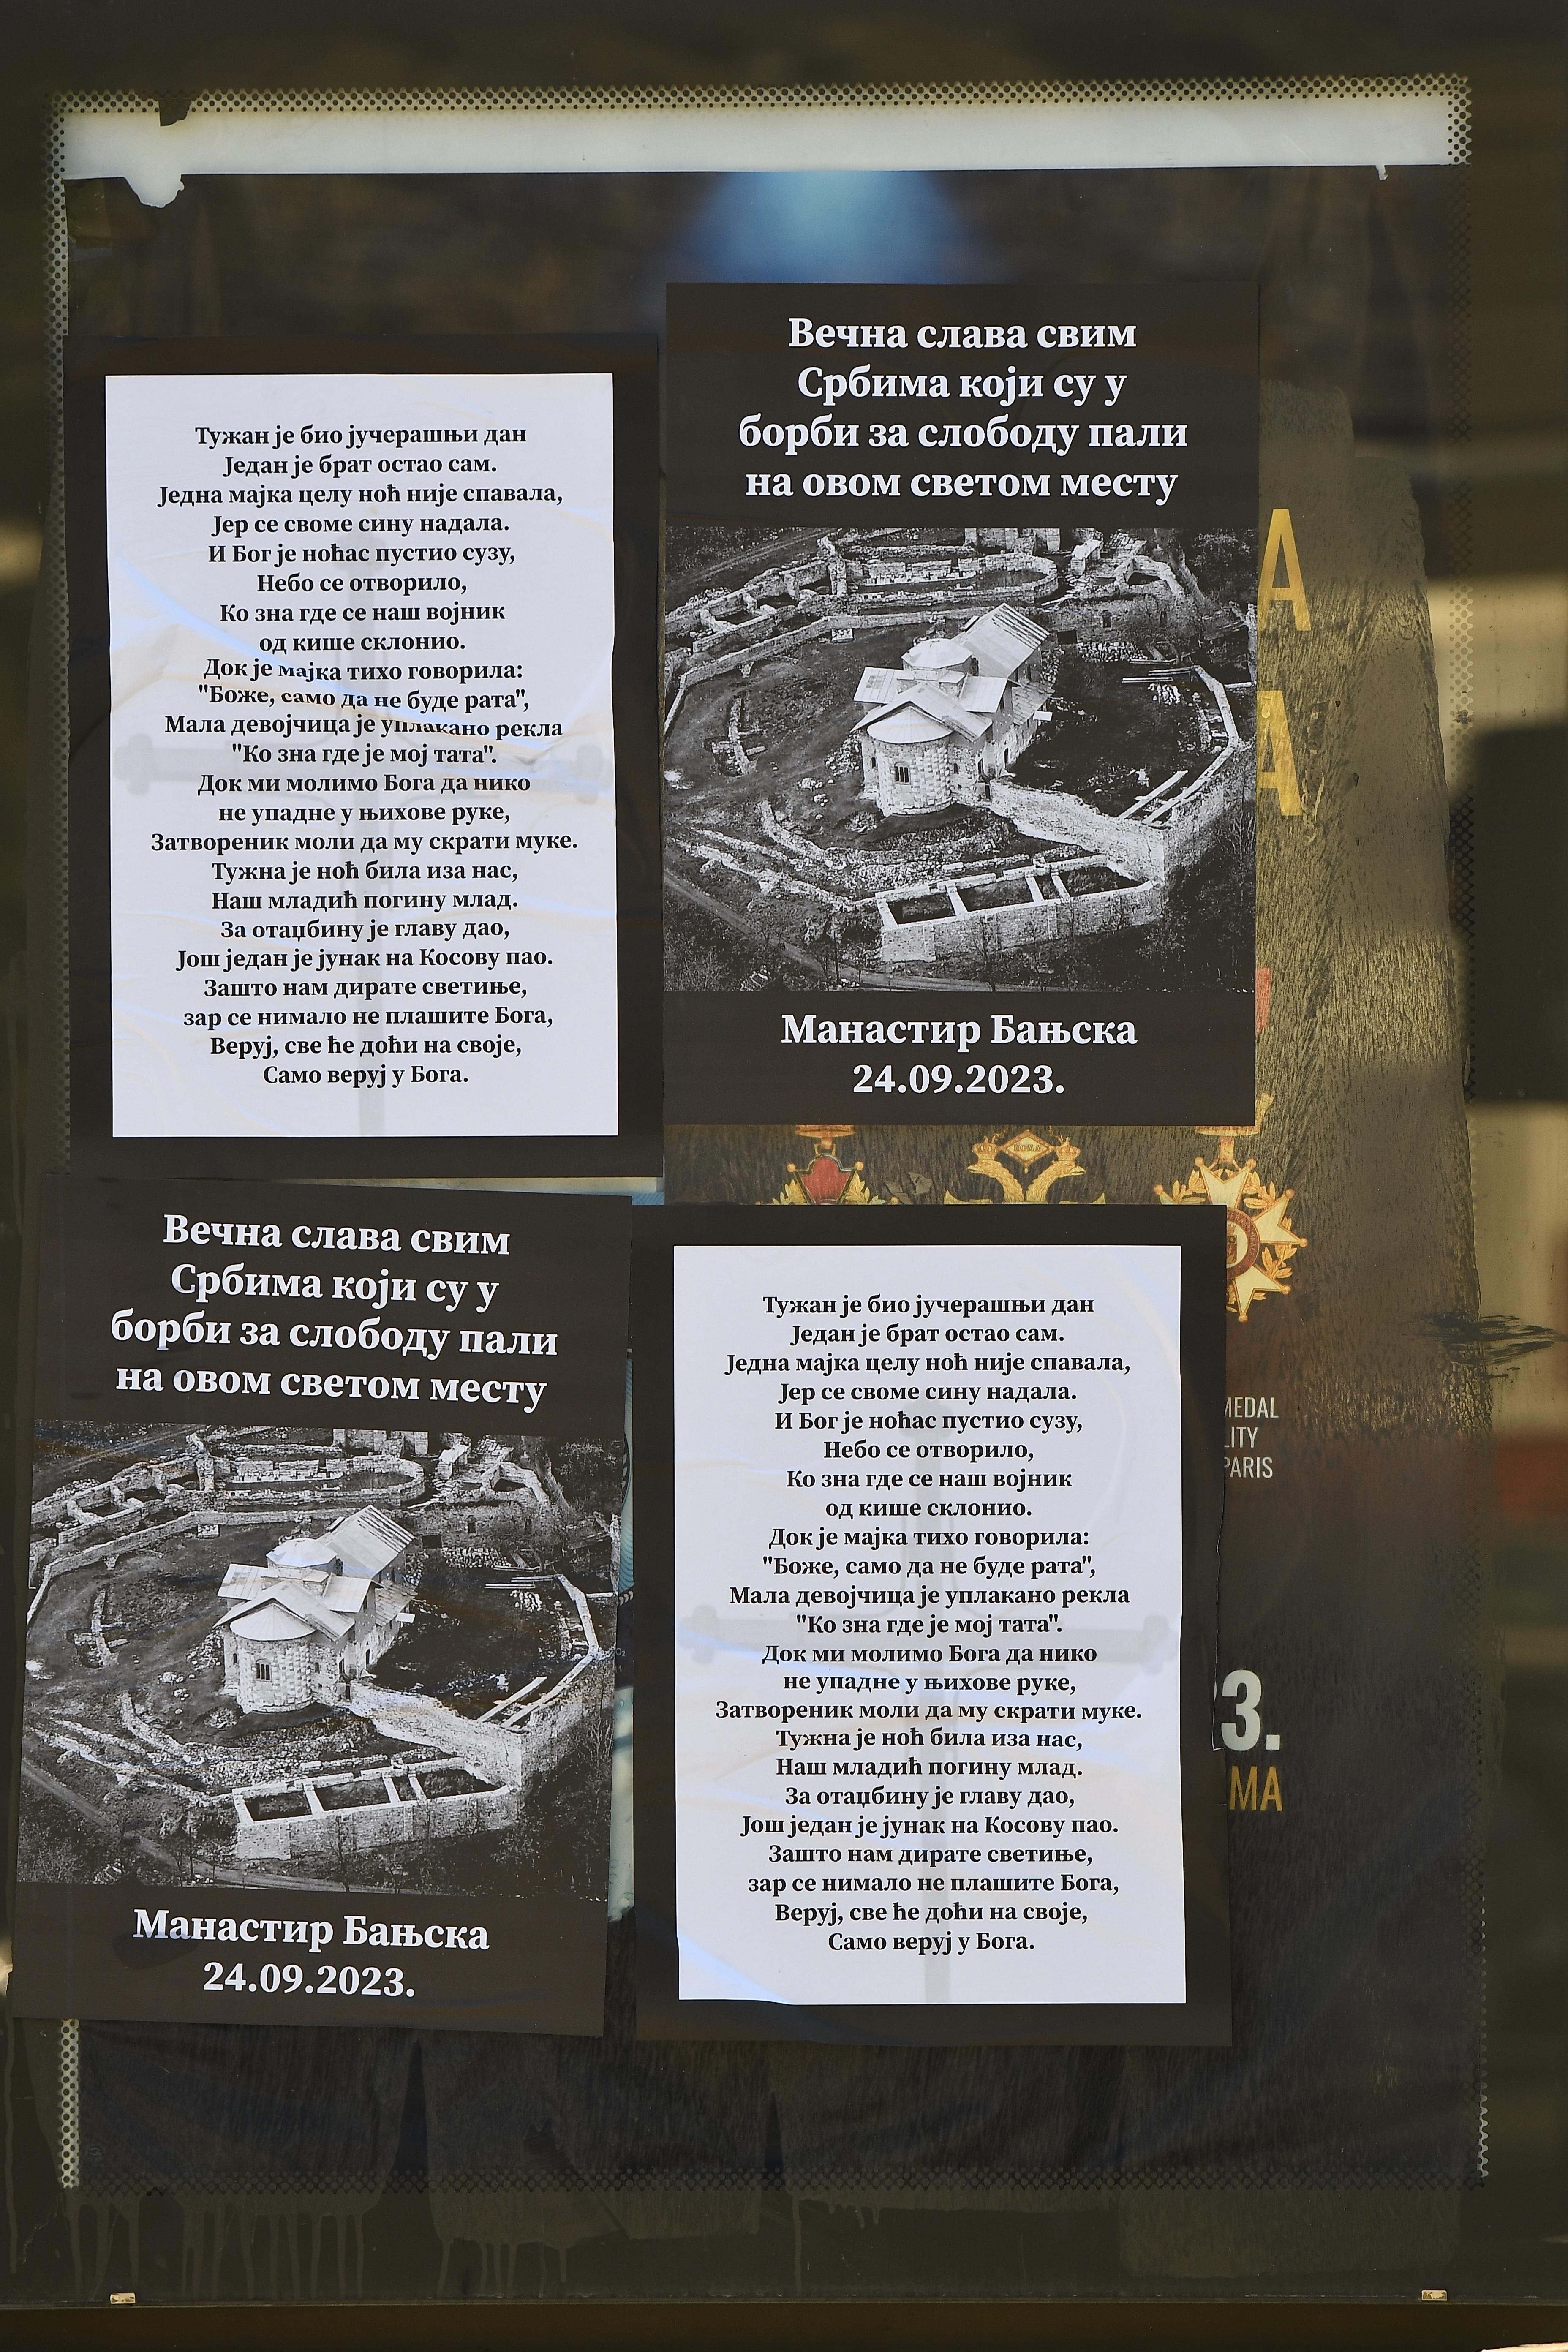 Вечна слава свим
Србима који су у
борби за слободу пали
на овом светом месту
Манастир Бањска
24.09.2023.
Тужан је био јучерашњи дан
Један је брат остао сам.
Једна мајка целу ноћ није спавала,
Јер се своме сину надала.
И Бог је ноћас пустио сузу,
Небо се отворило,
Ко зна где се наш војник
од кише склонио.
Док је мајка тихо говорила:
"Боже, само да не буде рата",
Мала девојчица је уплакано рекла
"Ко зна где је мој тата".
Док ми молимо Бога да нико
не упадне у њихове руке,
Затвореник моли да му скрати муке.
Тужна је ноћ била иза нас,
Наш младић погину млад.
За отаџбину је главу дао,
Још један је јунак на Косову пао.
Зашто нам дирате светиње,
зар се нимало не плашите Бога,
Веруј, све ће доћи на своје,
Само веруј у Бога.
Вечна слава свим
Србима који су у
борби за слободу пали
на овом светом месту
Манастир Бањска
24.09.2023.
Тужан је био јучерашњи дан
Један је брат остао сам.
Једна мајка целу ноћ није спавала,
Јер се своме сину надала.
И Бог је ноћас пустио сузу,
Небо се отворило,
Ко зна где се наш војник
од кише склонио.
Док је мајка тихо говорила:
"Боже, само да не буде рата",
Мала девојчица је уплакано рекла
"Ко зна где је мој тата".
Док ми молимо Бога да нико
не упадне у њихове руке,
Затвореник моли да му скрати муке.
Тужна је ноћ била иза нас,
Наш младић погину млад.
За отаџбину је главу дао,
Још један је јунак на Косову пао.
Зашто нам дирате светиње,
зар се нимало не плашите Бога,
Веруј, све ће доћи на своје,
Само веруј у Бога.
А
А
MEDAL
LITY
PARIS
3.
МА